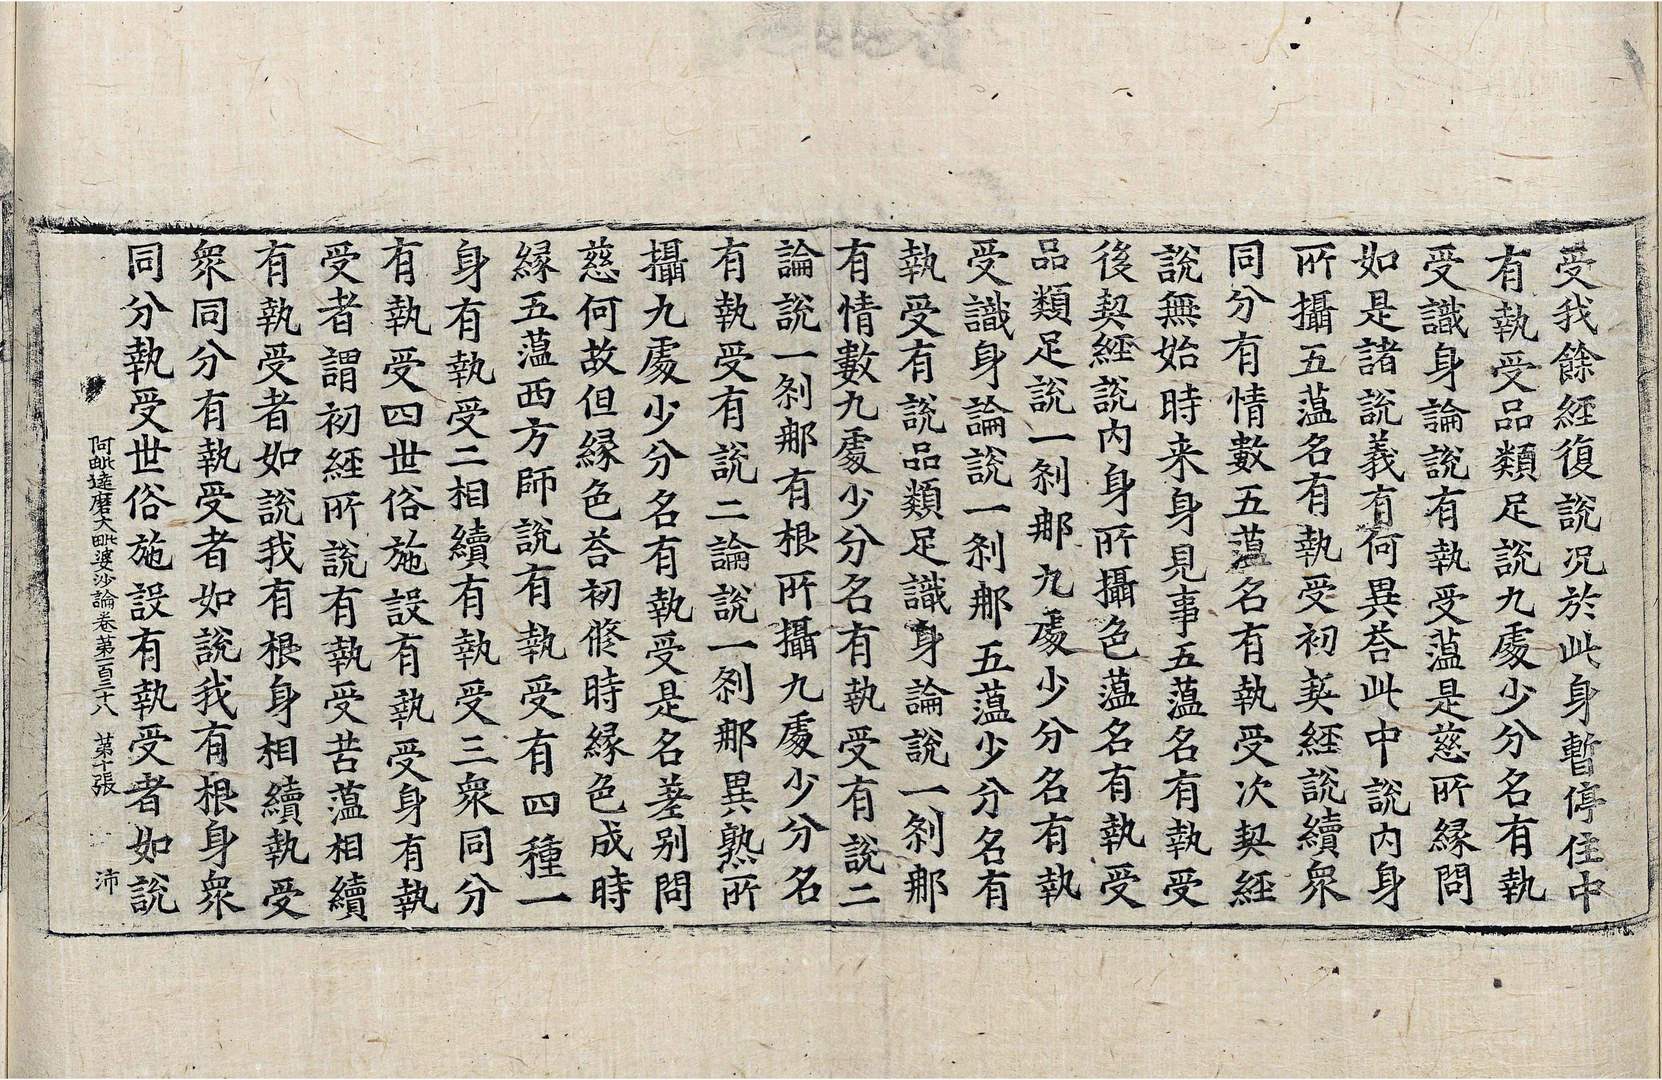 受我餘經復說況於此身暫停住中
有執受品類足說九處少分名有執
受識身論說有執受蕰是慈所緣問
如是諸說義有何異荅此中說内身
所攝五蕰名有執受初契經說續衆
同分有情數五蕰名有執受次契經
說無始時来身見事五蕰名有執受
後契經說内身所攝色蕰名有執受
品類足說一刹那九處少分名有執
受識身論說一刹那五蕰少分名有
執受有說品類足識身論說一刹那
有情數九處少分名有執受有說二
論說一刹那有根所攝九處少分名
有執受有說二論說一刹那異熟所
攝九處少分名有執受是名差别問
慈何故但緣色荅初脩時緣色成時
緣五蕰西方師說有執受有四種一
身有執受二相續有執受三衆同分
有執受四世俗施設有執受身有執
受者謂初經所說有執受苦蕰相續
有執受者如說我有根身相續執受
衆同分有執受者如說我有根身衆
同分執受世俗施設有執受者如說
阿毗達磨大毗婆沙論卷第一百三十八 第十張 沛